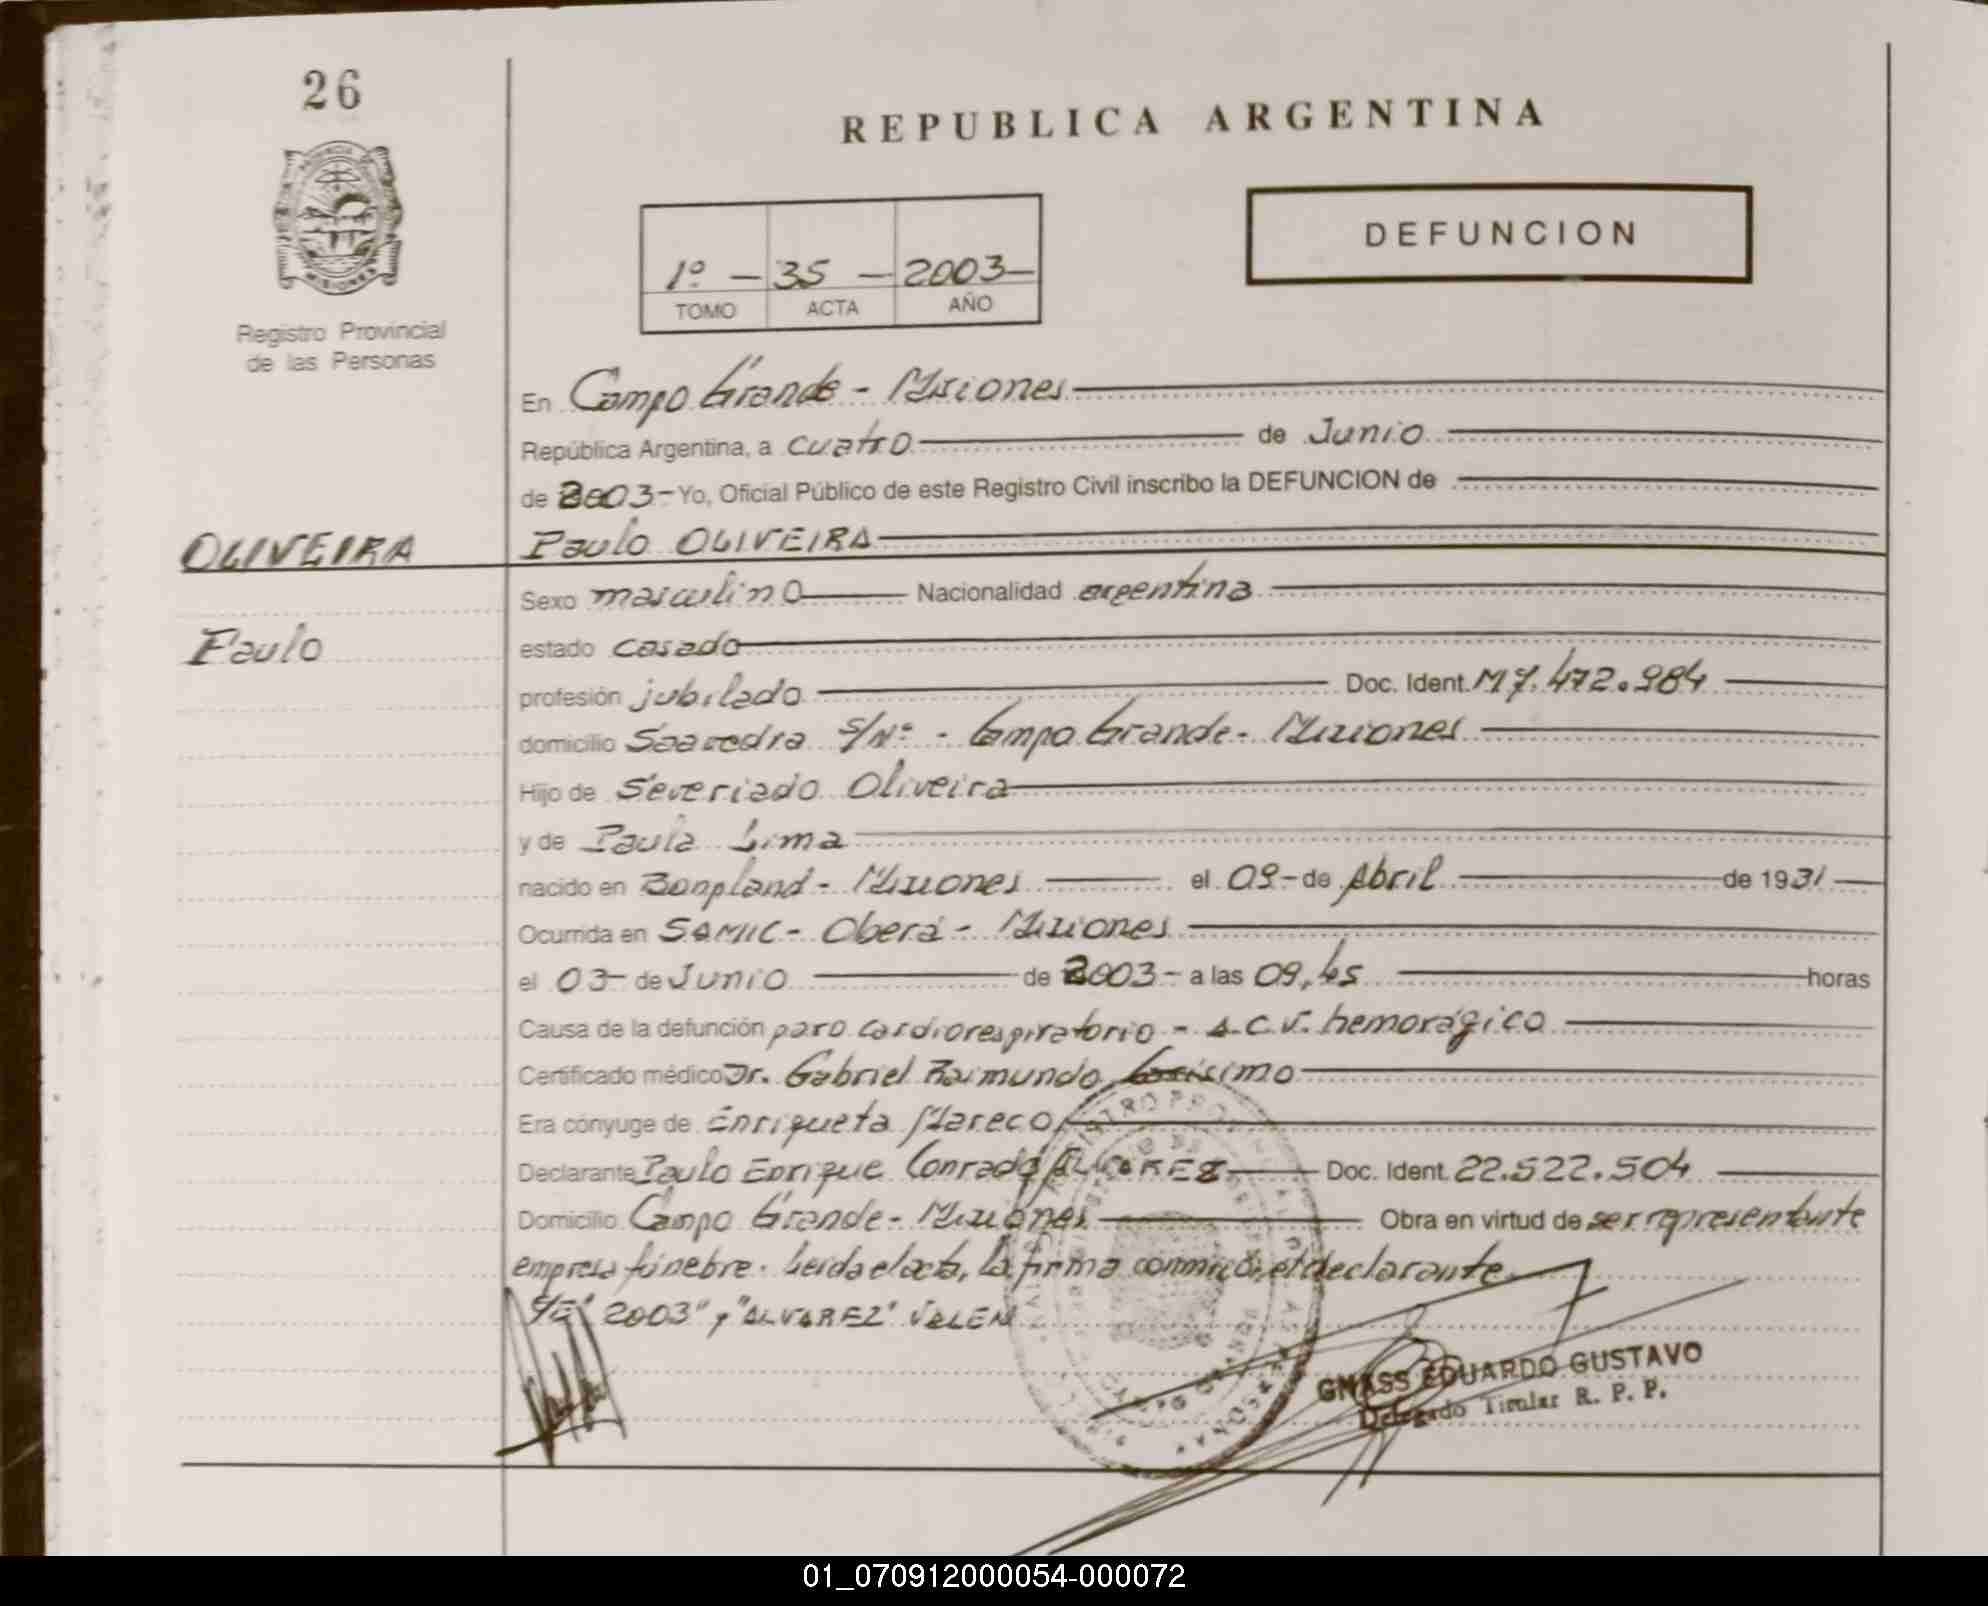 26
REPUBLICA ARGENTINA
DEFUNCION
1º - 35 - 2003-
TOMO ACTA AÑO
Registro Provincial
de las Personas
En Campo Grande - Misiones
República Argentina, a cuatro de Junio
de 2003- Yo, Oficial Público de este Registro Civil inscribo la DEFUNCION de
OLIVEIRA Paulo OLIVEIRA
Sexo masculino Nacionalidad argentina
Paulo estado casado
profesión jubilado Doc. Ident. M7.472.984
domicilio Saavedra S/Nº - Campo Grande - Misiones
Hijo de Severiado Oliveira
y de Paula Lima
nacido en Bonpland - Misiones el 09- de Abril de 1931
Ocurrida en SAMIC - Oberá - Misiones
el 03- de Junio de 2003- a las 09,45 horas
Causa de la defunción paro cardiorespiratorio - A.C.V. hemorágico
Certificado médico Dr. Gabriel Raimundo
Era cónyuge de Enriqueta Mareco
Declarante Paulo Enrique Conrado ALVAREZ Doc. Ident. 22.522.504
Domicilio Campo Grande - Misiones Obra en virtud de ser representante
empresa fúnebre. Leída el acta, la firma conmigo, el declarante
S/E "2003" y "ALVAREZ" VALEN
GNASS EDUARDO GUSTAVO
Delegado Titular R. P. P.
01_070912000054-000072